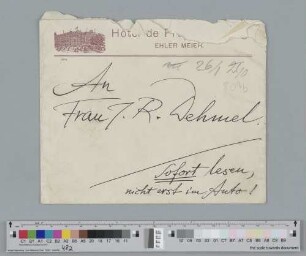 Hôtel de
EHLER MEIER.
26/
An
Frau J. R. Dehmel.
Sofort lesen,
nicht erst im Auto!
482